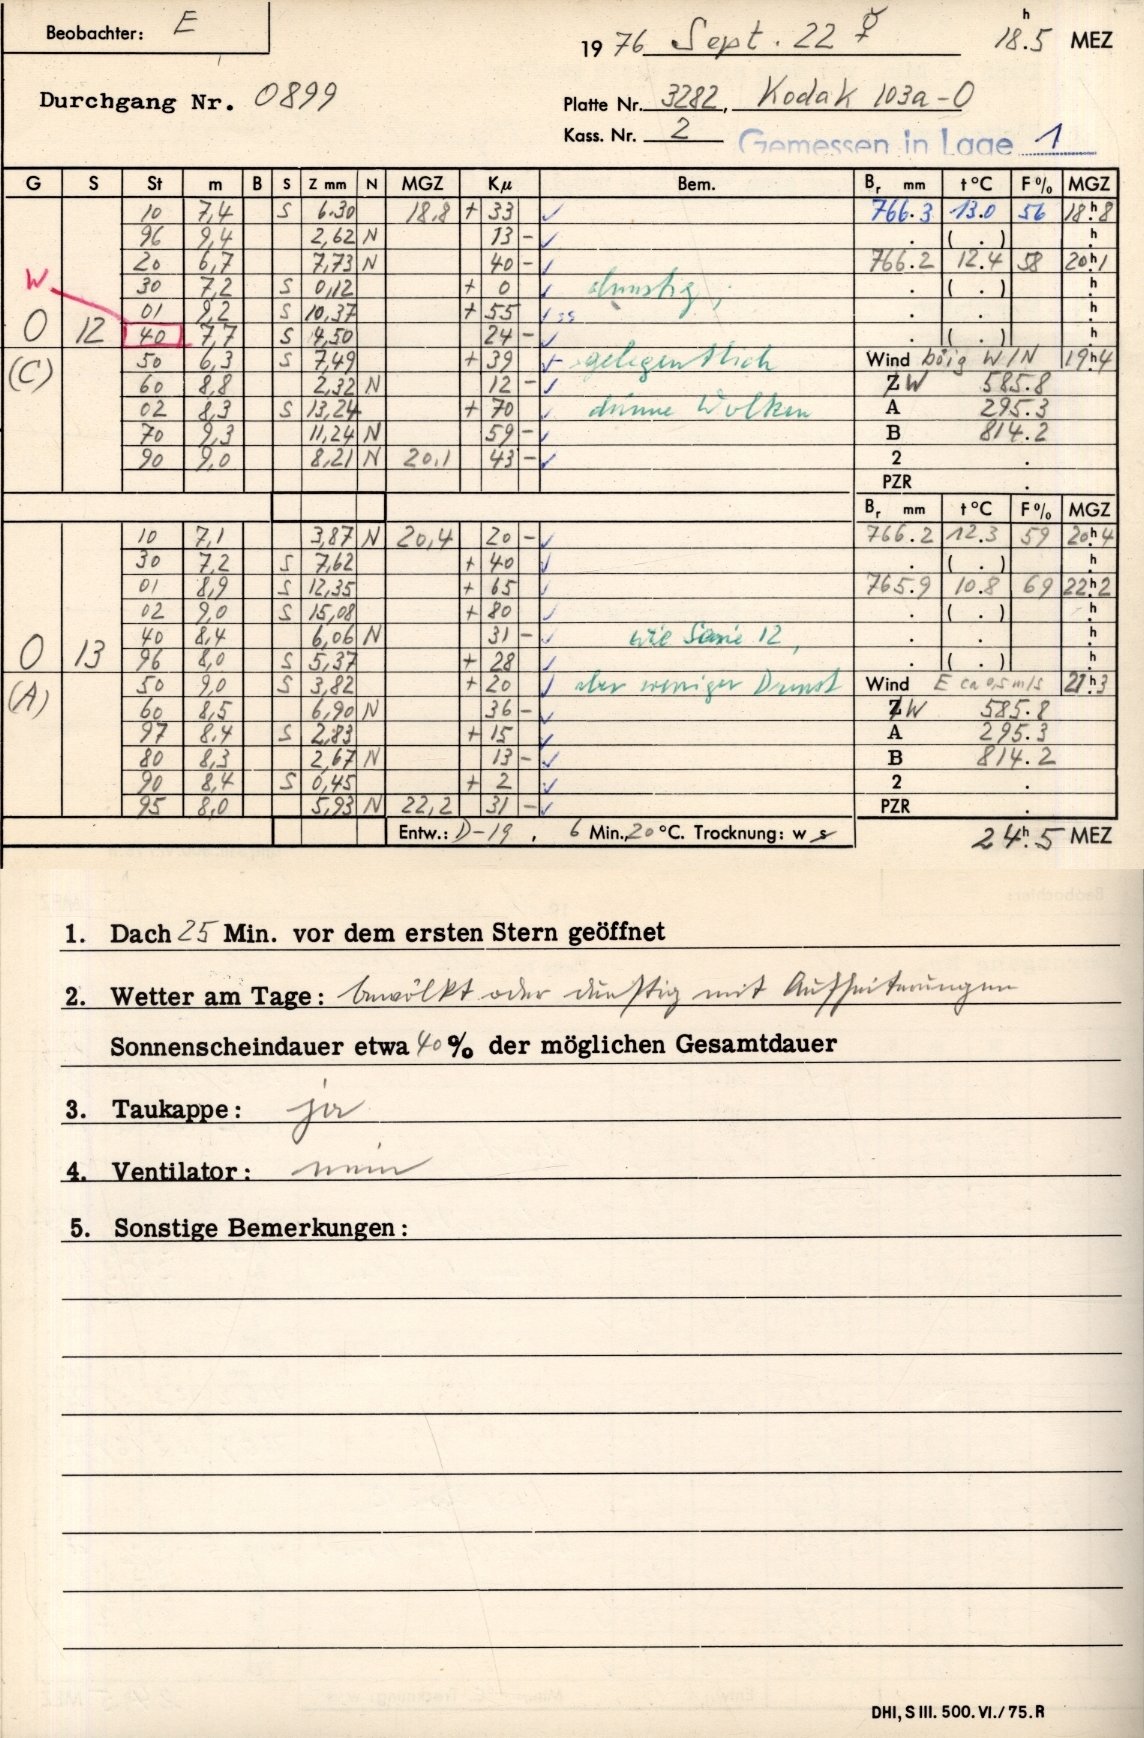 Beobachter: E
1976 Sept. 22 ☿ 18.5 h MEZ
Durchgang Nr. 0899
Platte Nr. 3282, Kodak 103a-O
Kass. Nr. 2 Gemessen in Lage 1
G S St m B S Z mm N MGZ Kμ Bem. Br mm t°C F% MGZ
10 7,4 S 6.30 18,8 + 33 ✓ 766.3 13.0 56 18h8
96 9,4 2,62 N 13 - ✓ . ( . ) h
20 6,7 7,73 N 40 - ✓ 766.2 12.4 58 20h1
W 30 7,2 S 0,12 + 0 ✓ dunstig, . ( . ) h
01 9,2 S 10,37 + 55 ✓ ss . . h
O 12 40 7,7 S 4,50 24 - ✓ . ( . ) h
(C) 50 6,3 S 7,49 + 39 ✓ gelegentlich Wind böig W/N 19h4
60 8,8 2,32 N 12 - ✓ ZW 585.8
02 8,3 S 13,24 + 70 ✓ dünne Wolken A 295.3
70 9,3 11,24 N 59 - ✓ B 814.2
90 9,0 8,21 N 20,1 43 - ✓ 2 .
PZR .
Br mm t°C F% MGZ
10 7,1 3,87 N 20,4 20 - ✓ 766.2 12.3 59 20h4
30 7,2 S 7,62 + 40 ✓ . ( . ) h
01 8,9 S 12,35 + 65 ✓ 765.9 10.8 69 22h2
02 9,0 S 15,08 + 80 ✓ . ( . ) h
40 8,4 6,06 N 31 - ✓ wie Serie 12, . . h
O 13 96 8,0 S 5,37 + 28 ✓ . ( . ) h
(A) 50 9,0 S 3,82 + 20 ✓ aber weniger Dunst Wind E ca 0,5 m/s 21h3
60 8,5 6,90 N 36 - ✓ ZW 585.8
97 8,4 S 2,83 + 15 ✓ A 295.3
80 8,3 2,67 N 13 - ✓ B 814.2
90 8,4 S 0,45 + 2 ✓ 2 .
95 8,0 5,93 N 22,2 31 - ✓ PZR .
Entw.: D-19, 6 Min., 20 °C. Trocknung: w s 24h.5 MEZ
1. Dach 25 Min. vor dem ersten Stern geöffnet
2. Wetter am Tage: bewölkt oder dunstig mit Aufheiterungen
Sonnenscheindauer etwa 40% der möglichen Gesamtdauer
3. Taukappe: ja
4. Ventilator: nein
5. Sonstige Bemerkungen:
DHI, S III. 500. VI./75. R